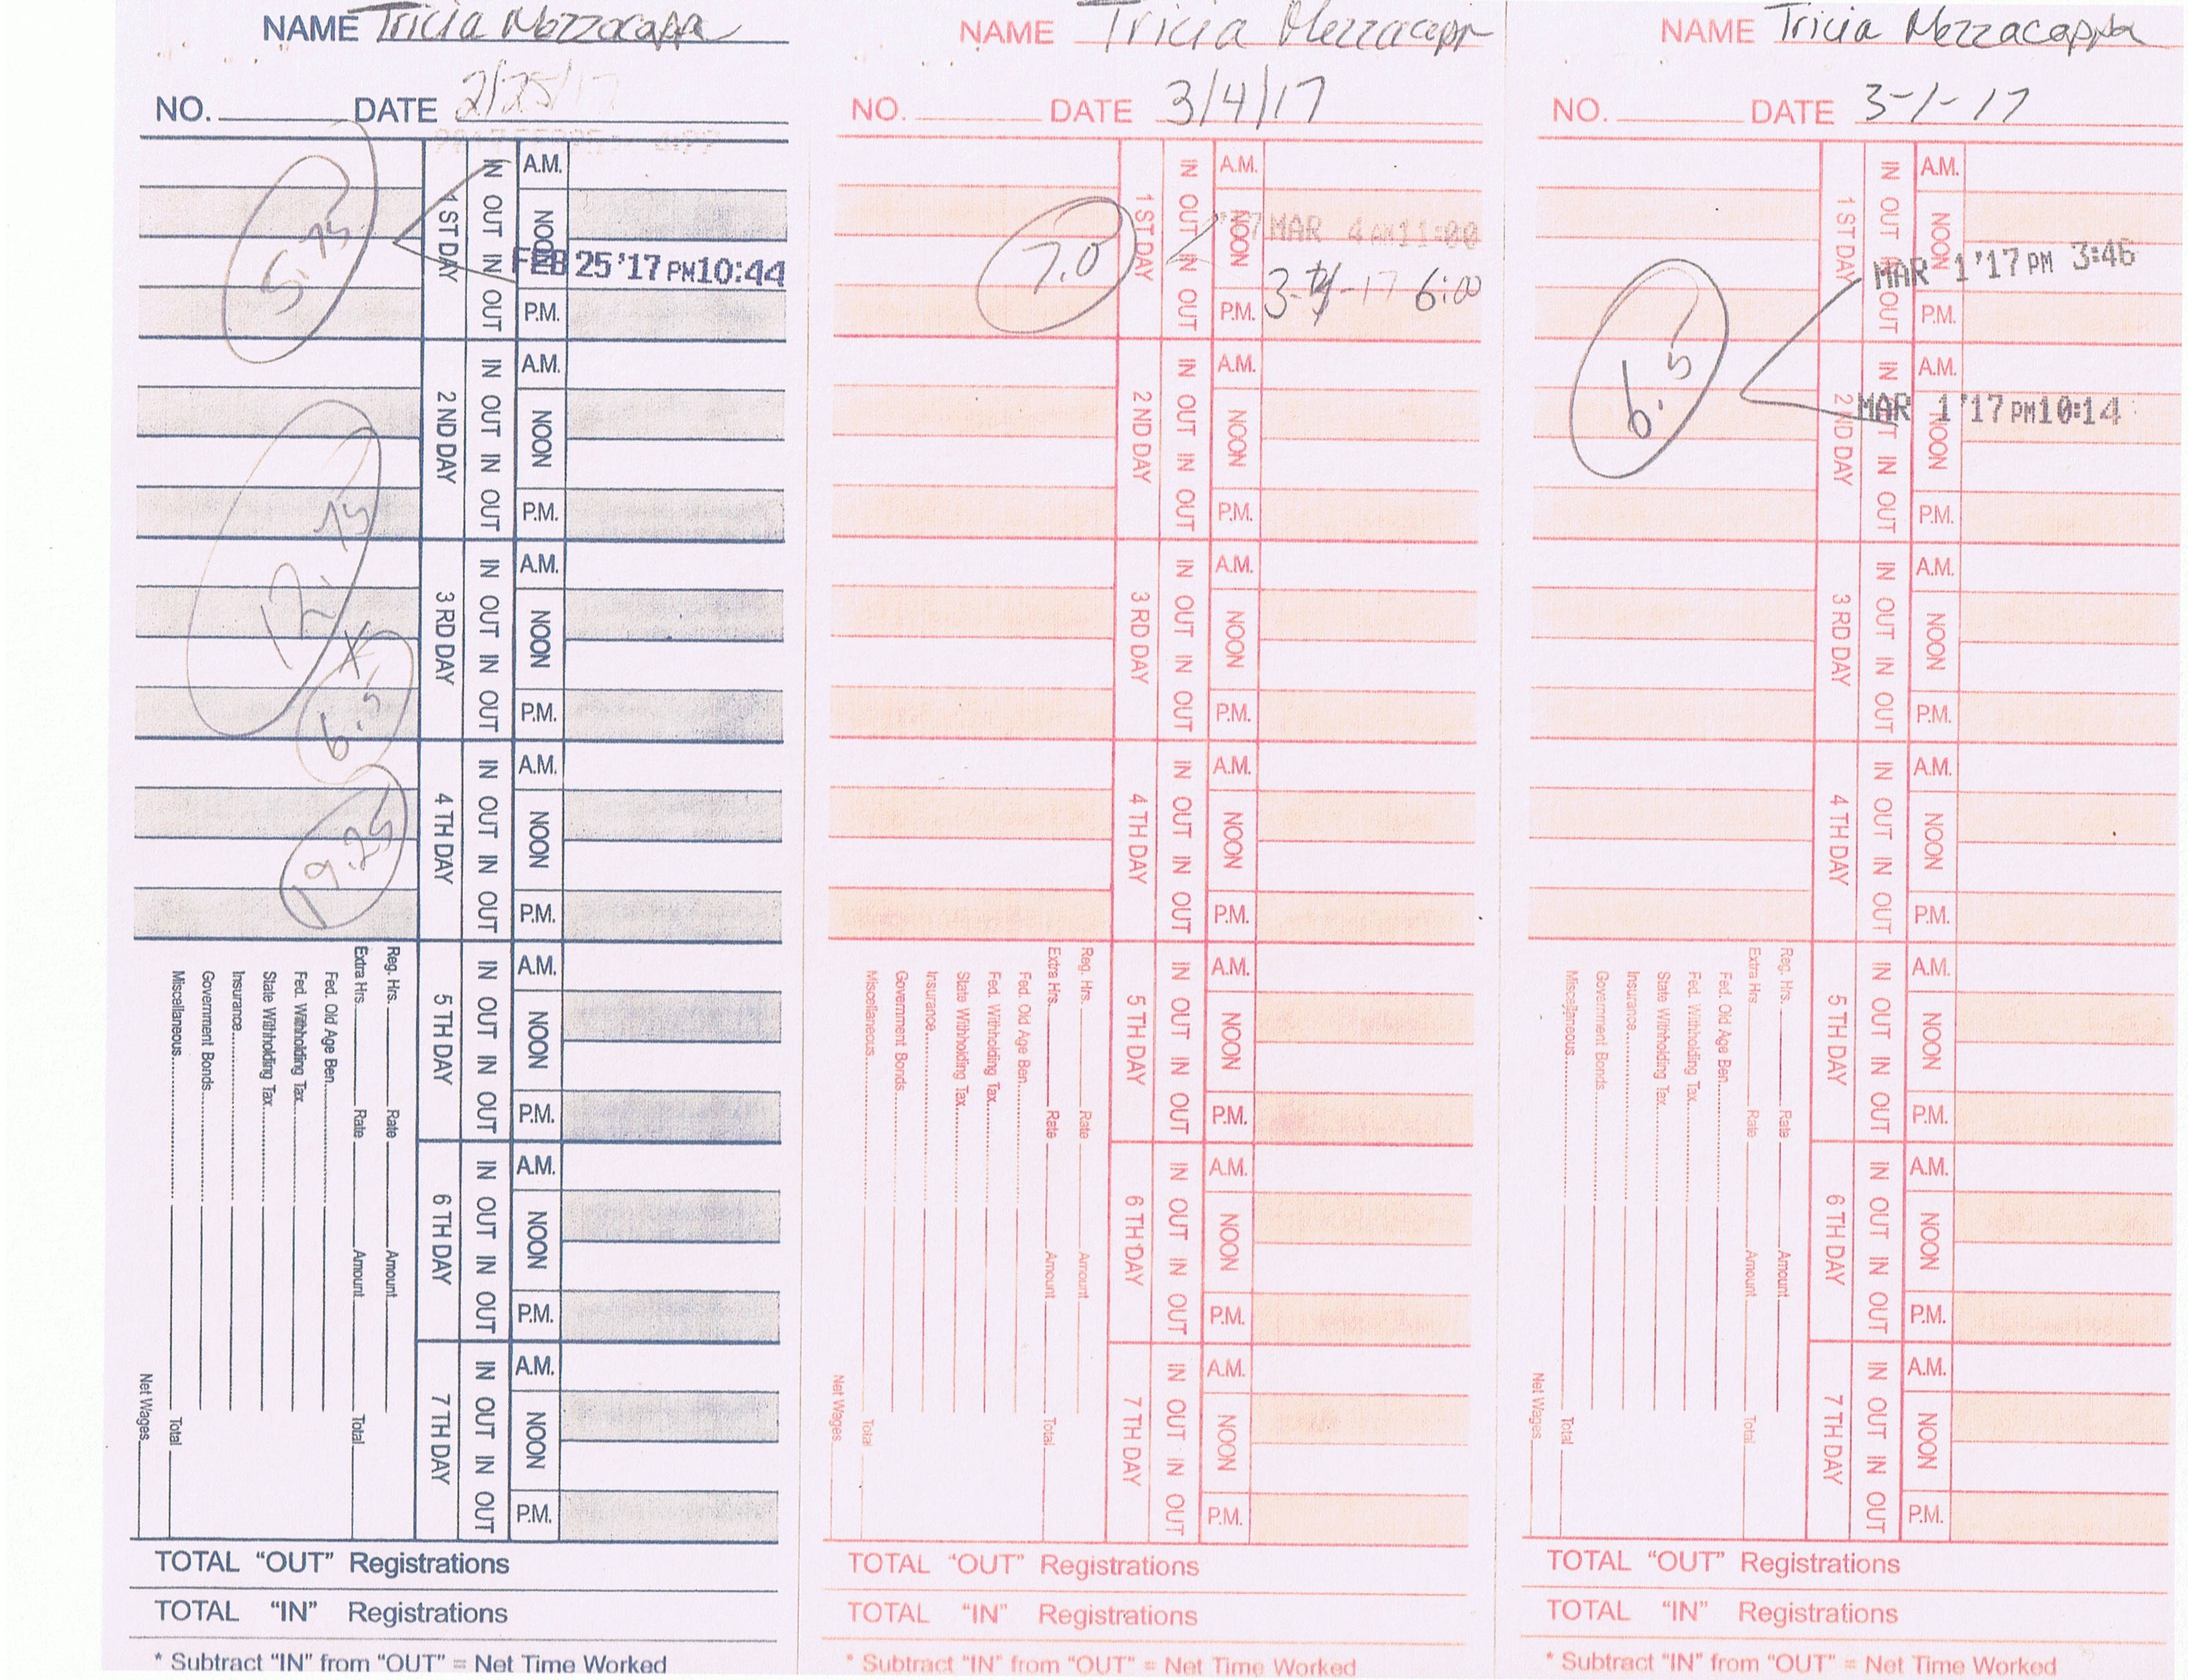 NAME Tricia Mezzacappa
NO. DATE 2/25/17
1 ST DAY IN OUT IN OUT A.M. NOON P.M.
FEB 25 '17 PM 10:44
5.75
2 ND DAY IN OUT IN OUT A.M. NOON P.M.
12.75
3 RD DAY IN OUT IN OUT A.M. NOON P.M.
6.5
4 TH DAY IN OUT IN OUT A.M. NOON P.M.
19.25
5 TH DAY IN OUT IN OUT A.M. NOON P.M.
6 TH DAY IN OUT IN OUT A.M. NOON P.M.
7 TH DAY IN OUT IN OUT A.M. NOON P.M.
Reg. Hrs. Rate Amount
Extra Hrs. Rate Amount Total
Fed. Old Age Ben.
Fed. Withholding Tax
State Withholding Tax
Insurance
Government Bonds
Miscellaneous Total
Net Wages
TOTAL “OUT” Registrations
TOTAL “IN” Registrations
* Subtract “IN” from “OUT” = Net Time Worked
NAME Tricia Mezzacapp
NO. DATE 3/4/17
1 ST DAY IN OUT IN OUT A.M. NOON P.M.
'17 MAR 4 AM 11:00
3-4-17 6:00
7.0
2 ND DAY IN OUT IN OUT A.M. NOON P.M.
3 RD DAY IN OUT IN OUT A.M. NOON P.M.
4 TH DAY IN OUT IN OUT A.M. NOON P.M.
5 TH DAY IN OUT IN OUT A.M. NOON P.M.
6 TH DAY IN OUT IN OUT A.M. NOON P.M.
7 TH DAY IN OUT IN OUT A.M. NOON P.M.
Reg. Hrs. Rate Amount
Extra Hrs. Rate Amount Total
Fed. Old Age Ben.
Fed. Withholding Tax
State Withholding Tax
Insurance
Government Bonds
Miscellaneous Total
Net Wages
TOTAL “OUT” Registrations
TOTAL “IN” Registrations
* Subtract “IN” from “OUT” = Net Time Worked
NAME Tricia Mezzacappa
NO. DATE 3-1-17
1 ST DAY IN OUT IN OUT A.M. NOON P.M.
MAR 1 '17 PM 3:46
6.5
2 ND DAY IN OUT IN OUT A.M. NOON P.M.
MAR 1 '17 PM 10:14
3 RD DAY IN OUT IN OUT A.M. NOON P.M.
4 TH DAY IN OUT IN OUT A.M. NOON P.M.
5 TH DAY IN OUT IN OUT A.M. NOON P.M.
6 TH DAY IN OUT IN OUT A.M. NOON P.M.
7 TH DAY IN OUT IN OUT A.M. NOON P.M.
Reg. Hrs. Rate Amount
Extra Hrs. Rate Amount Total
Fed. Old Age Ben.
Fed. Withholding Tax
State Withholding Tax
Insurance
Government Bonds
Miscellaneous Total
Net Wages
TOTAL “OUT” Registrations
TOTAL “IN” Registrations
* Subtract “IN” from “OUT” = Net Time Worked